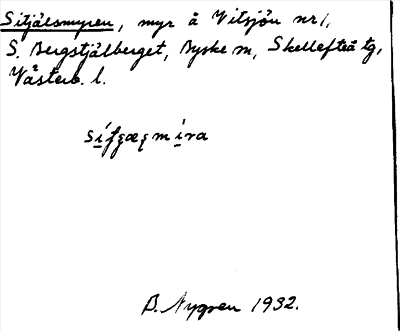 Sitjälsmyren, myr å Vitsjön nr 1,
S. Bergstjälberget, Byske sn, Skellefteå tg,
Västerb. l.
B. Nygren 1932.